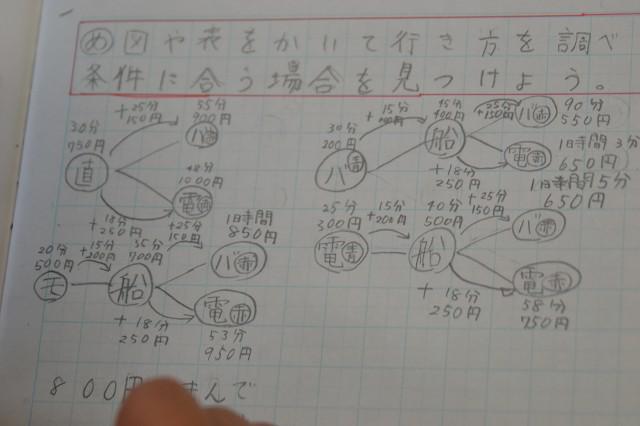 め 図や表をかいて行き方を調べ
条件に合う場合を見つけよう。
30分
750円
直
+25分
150円
55分
900円
バ赤
48分
1000円
電赤
+18分
250円
30分
200円
バ青
+15分
45分
400円
船
+25分
+150円
バ赤
90分
550円
電赤
1日時間3分
650円
+18分
250円
20分
500円
モ
+15分
200円
35分
700円
船
+25分
150円
1日時間
850円
バ赤
電赤
53分
950円
+18分
250円
25分
300円
電青
15分
+200円
40分
500円
船
+25分
150円
1日時間5分
650円
バ赤
電赤
58分
750円
+18分
250円
800円
んで